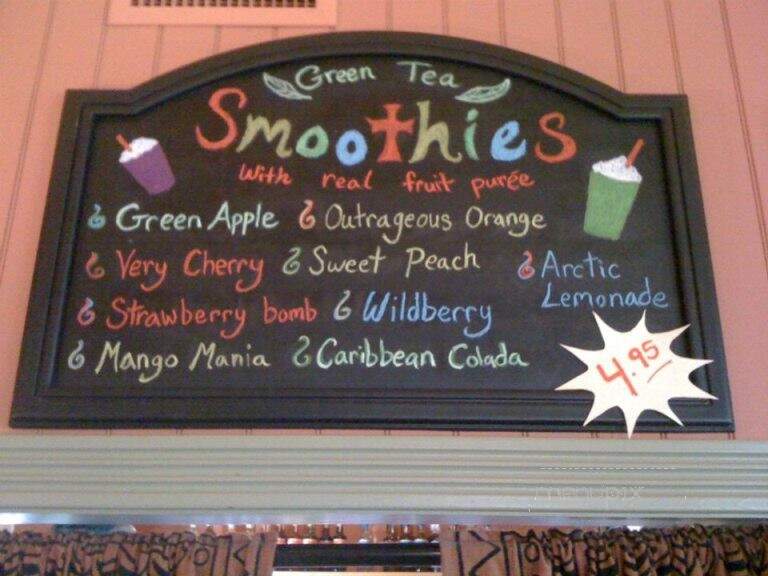 Green Tea
Smoothies
with real fruit purée
Green Apple
Outrageous Orange
Very Cherry
Sweet Peach
Arctic
Lemonade
Strawberry bomb
Wildberry
Mango Mania
Caribbean Colada
4.95
menupix